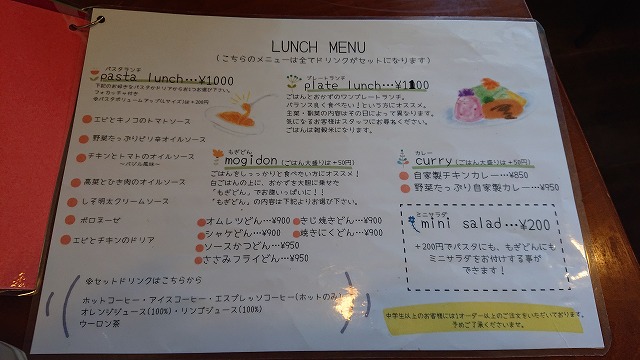 LUNCH MENU
(こちらのメニューは全てドリンクがセットになります)
パスタランチ
pasta lunch…¥1000
下記のお好きなパスタかドリアからお1つお選び下さい。
フォカッチャ付き
※パスタボリュームアップ(Lサイズ)は+200円
エビとキノコのトマトソース
野菜たっぷりピリ辛オイルソース
チキンとトマトのオイルソース
~バジル風味~
高菜とひき肉のオイルソース
しそ明太クリームソース
ボロネーゼ
エビとチキンのドリア
プレートランチ
plate lunch…¥1100
ごはんとおかずのワンプレートランチ。
バランス良く食べたい!という方にオススメ。
主菜・副菜の内容はその日によって異なります。
気になるお客様はスタッフにお尋ねください。
ごはんは雑穀米になります。
もぎどん
mogidon (ごはん大盛りは+50円)
ごはんをしっっかりと食べたい方にオススメ!
白ごはんの上に、おかずを大胆に乗せた
「もぎどん」でお腹いっぱいに!!
「もぎどん」の内容は下記よりお選び下さい。
オムレツどん…¥900
シャケどん…¥900
ソースかつどん…¥950
ささみフライどん…¥950
きじ焼きどん…¥900
焼きにくどん…¥900
カレー
curry (ごはん大盛りは+50円)
自家製チキンカレー…¥850
野菜たっぷり自家製カレー…¥950
ミニサラダ
mini salad…¥200
+200円でパスタにも、もぎどんにも
ミニサラダをお付けする事が
できます!
※セットドリンクはこちらから
ホットコーヒー・アイスコーヒー・エスプレッソコーヒー(ホットのみ)
オレンジジュース(100%)・リンゴジュース(100%)
ウーロン茶
中学生以上のお客様には1オーダー以上のご注文をいただいております。
予めご了承くださいませ。